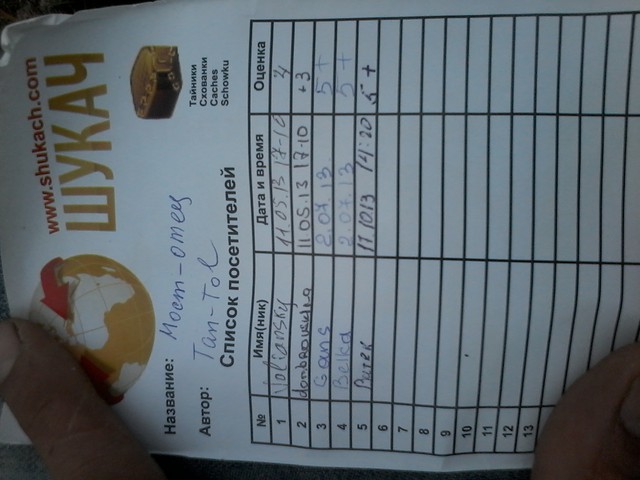 www.shukach.com
ШУКАЧ
Тайники
Схованки
Caches
Schowku
Название: Мост-отец
Автор: Tan-Tol
Список посетителей
№ Имя(ник) Дата и время Оценка
1 Voliansky 11.05.13 17-10
2 11.05.13 17-10 +3
3 Gans 2.07.13 5+
4 Belka 2.07.13 5+
5 11.10.13 14:20 5+
6
7
8
9
10
11
12
13